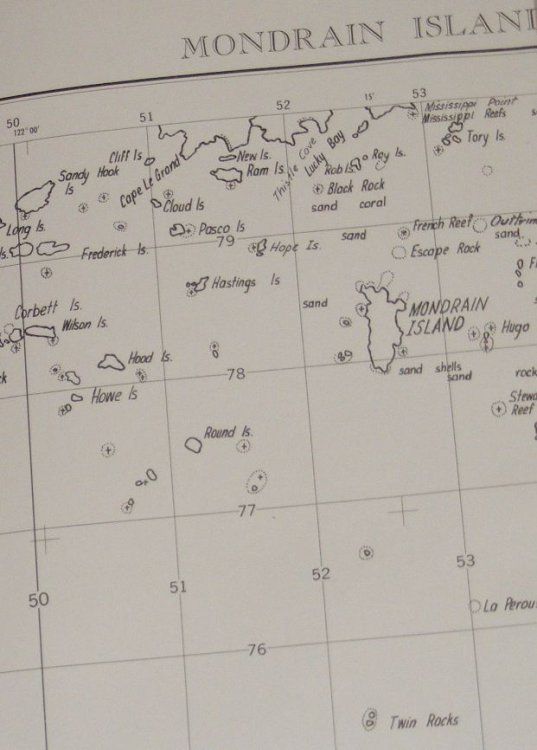 MONDRAIN
50
122° 00'
51
52
15'
53
Mississippi Point
Mississippi Reefs
Tory Is.
Cliff Is
Cape Le Grand
New Is.
Ram Is.
Thistle Cove
Lucky Bay
Rob Is
Roy Is.
Sandy Hook
Is
Black Rock
sand coral
Cloud Is
Long Is.
Pasco Is
79
Hope Is.
sand
French Reef
sand
Escape Rock
Frederick Is.
Hastings Is
sand
MONDRAIN
ISLAND
Hugo
Corbett Is.
Wilson Is.
Hood Is.
78
sand shells
sand
Howe Is
Reef
Round Is.
77
50
51
52
53
76
Twin Rocks